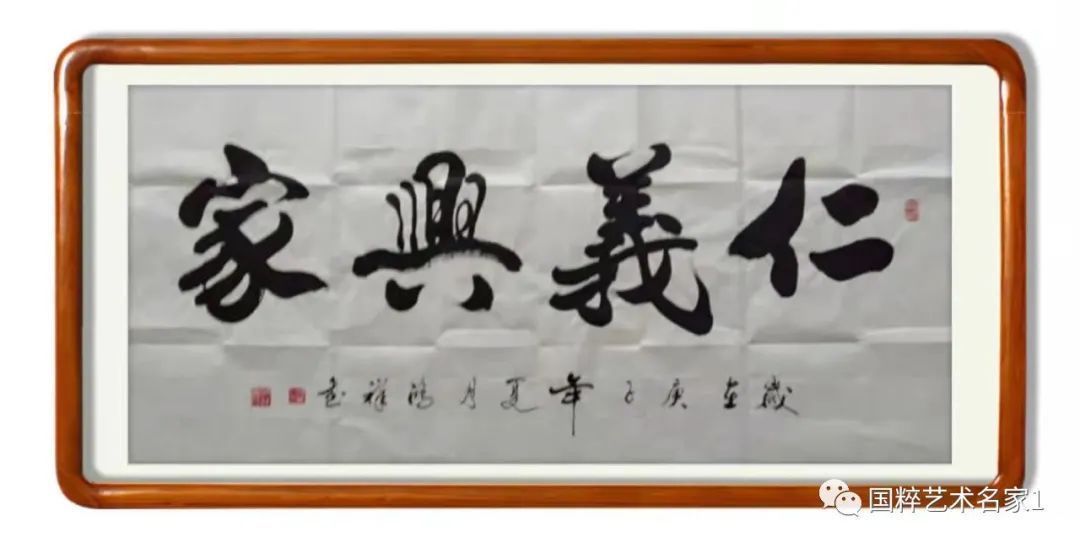 仁義興家
歲在庚子年夏月鴻祥書
国粹艺术名家1